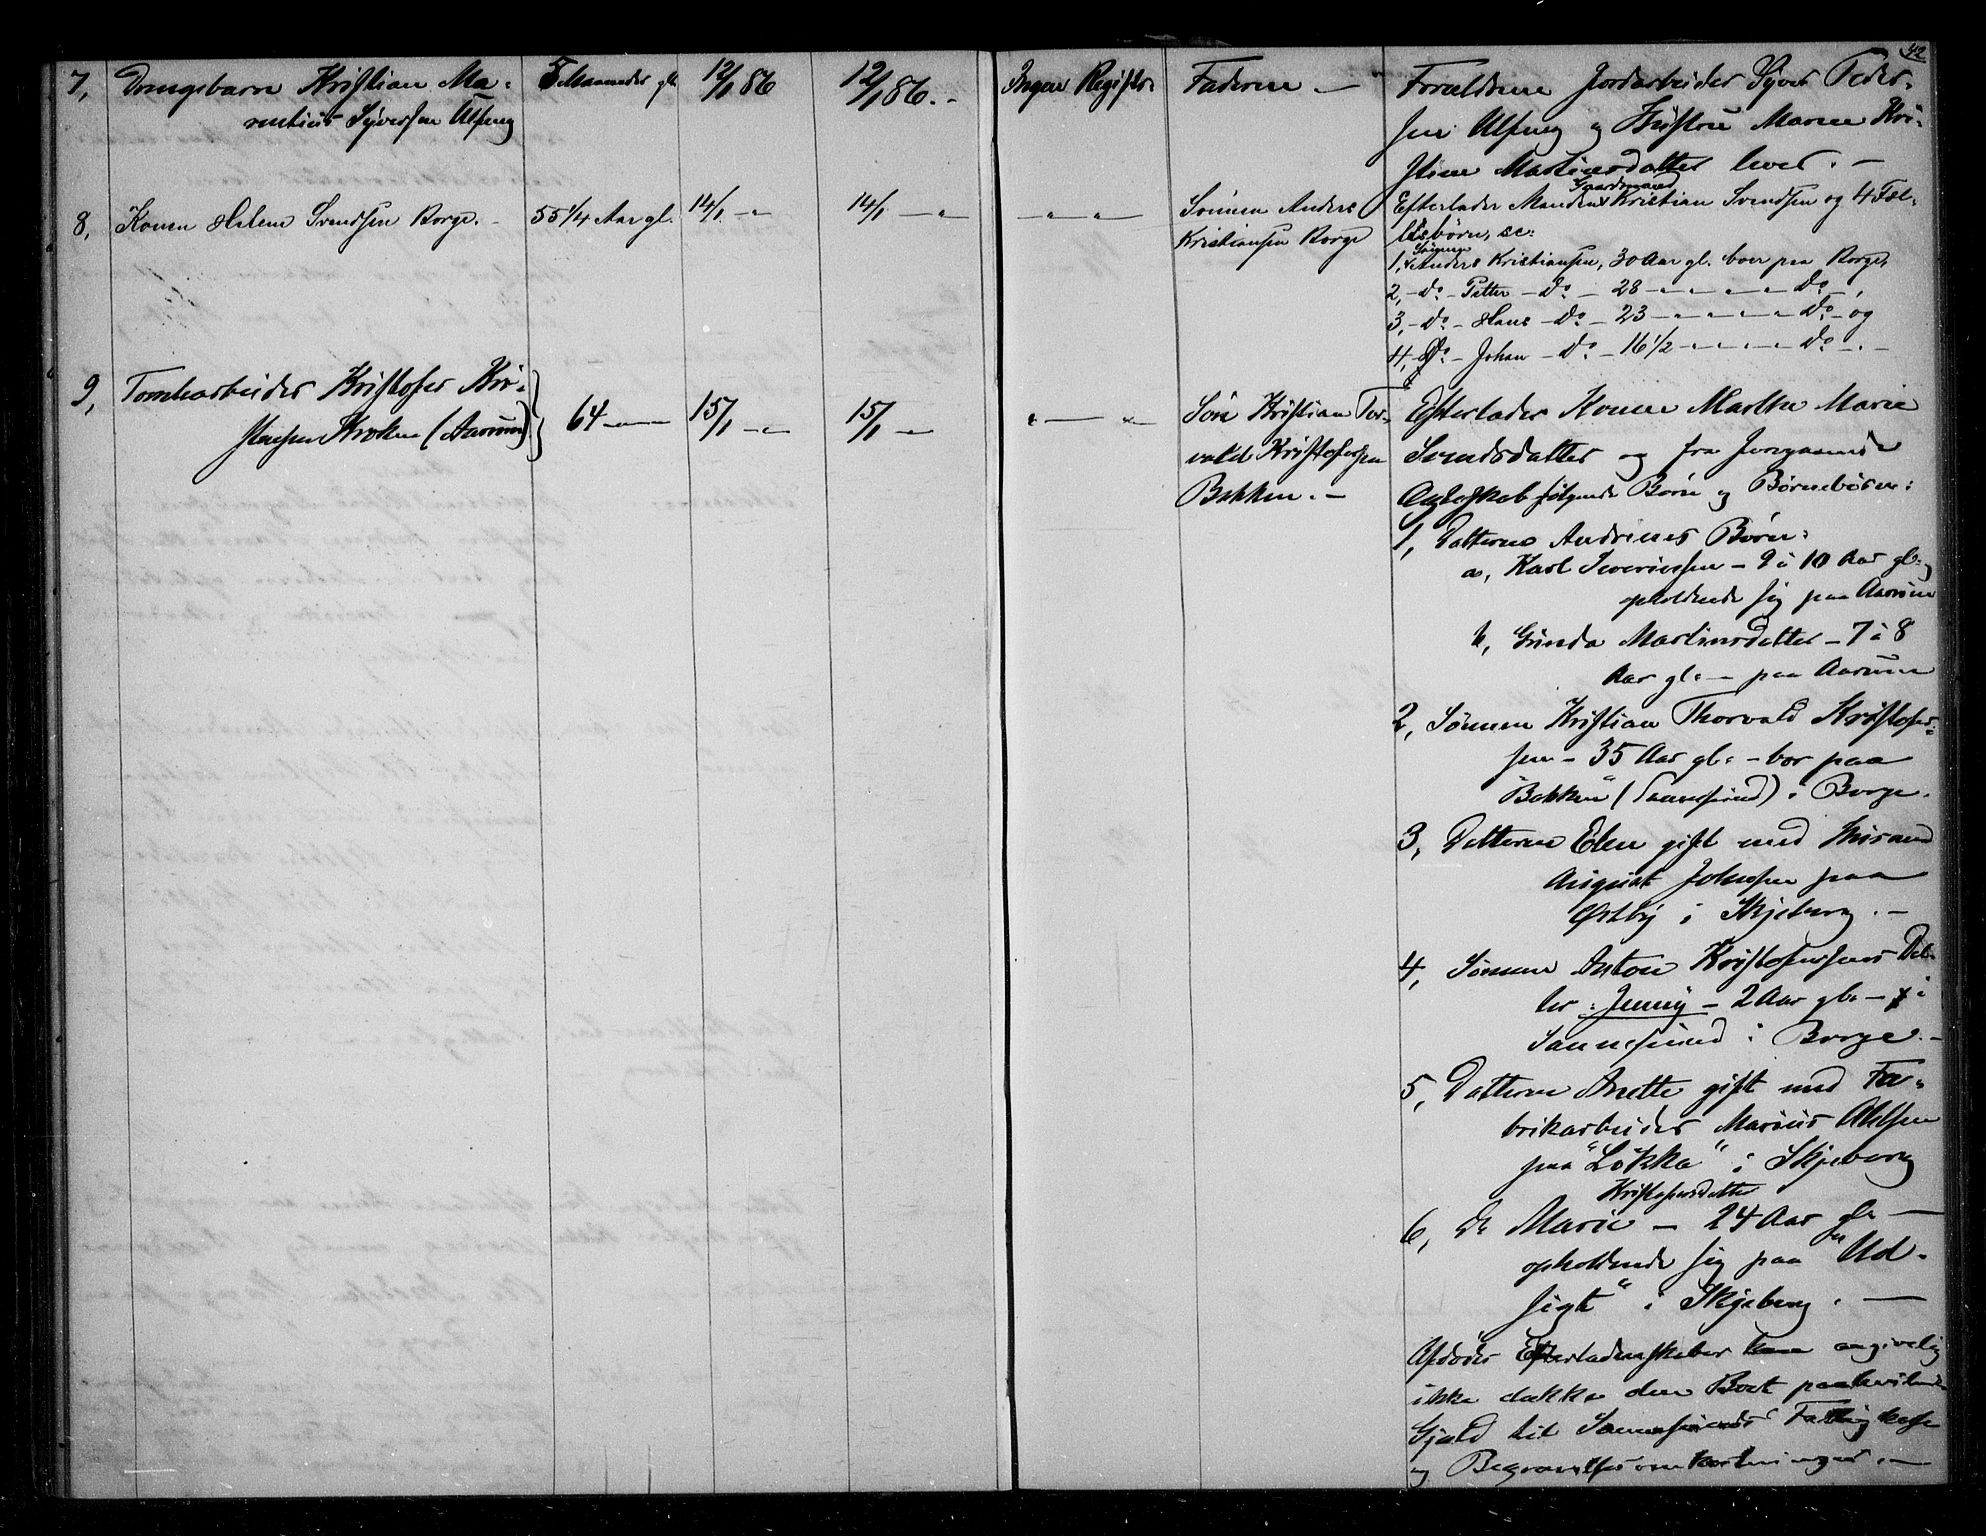 42
7, Drengebarn Kristian Ma-
rentius Syversen Ulfeng
5 Maaneder gl.
12/1 86
12/1 86. -
Ingen Register
Faderen -
Forældrene Jordarbeider Syver Peder-
sen Ulfeng og Hustru Maren Kri-
stine Martinsdatter lever. -
8, Konen Helene Svendsen Borge. -
55 1/4 Aar gl.
14/1 - "
14/1 - "
- " - " -
Sønnen Anders
Kristiansen Borge
Efterlader Manden Gaardmand Kristian Svendsen og 4 Fæl-
lesbørn, sc:
1, Sønnen Anders Kristiansen, 30 Aar gl. boer paa Borge,
2, - do - Petter - do - 28 - " - " - " - do -,
3, - do - Hans - do - 23 - " - " - " - do - og
4, - do - Johan - do - 16 1/2 - " - " - " - do - . -
9, Tomtearbeider Kristofer Kri-
stensen Kroken (Aarum)
64 - " -
15/1 - "
15/1 - "
" - " -
Søn Kristian Tor-
vald Kristofersen
Bakken. -
Efterlader Konen Marthe Marie
Svendsdatter og fra foregaaende
Ægteskab følgende Børn og Børnebørn:
1, Datteren Andrines Børn:
a, Karl Severinsen - 9 à 10 Aar gl.
opholdende sig paa Aarum
b, Gunda Martinsdatter - 7 à 8
Aar gl. - paa Aarum
2, Sønnen Kristian Thorvald Kristofer-
sen - 35 Aar gl. - bor paa
"Bakken" (Sannesund) i Borge.
3, Datteren Elen gift med Husmand
August Johnsen paa
Østby i Skjeberg. -
4, Sønnen Anton Kristofersens Dat-
ter: Jenny - 2 Aar gl. - i
Sannesund i Borge. -
5, Datteren Anette gift med Fa-
brikarbeider Marius Olsen
paa "Løkka" i Skjeberg
6, do Marie Kristofersdatter - 24 Aar gl. -
opholdende sig paa "Ud-
sigt" i Skjeberg. -
Afdødes Efterladenskaber kan angivelig
ikke dække den Boet paahvilende
Gjæld til Sannesunds Fattigkasse
og Begravelsesomkostninger. -